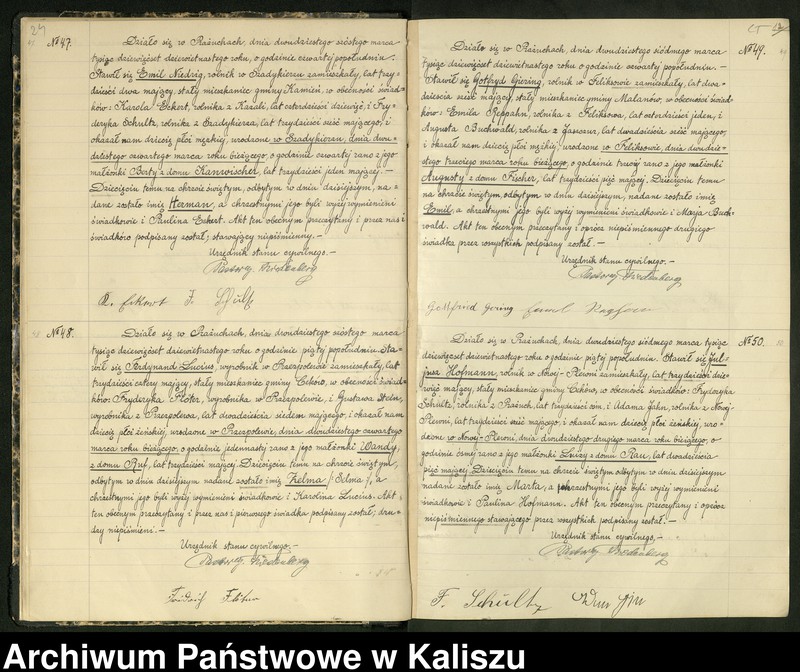 29
№ 47.
Działo się w Prażuchach, dnia dwudziestego szóstego marca
tysiąc dziewięćset dziewiętnastego roku, o godzinie czwartej popołudniu.
Stawił się Emil Niedrig, rolnik w Czadykierzu zamieszkały, lat trzy-
dzieści dwa mający, stały mieszkaniec gminy Kamień, w obecności świad-
ków: Karola Eckert, rolnika z Kazali, lat czterdzieści dziewięć, i Fry-
deryka Schultz, rolnika z Czadykierza, lat trzydzieści sześć mającego, i
okazał nam dziecię płci męzkiej, urodzone w Czadykierzu, dnia dwu-
dziestego czwartego marca roku bieżącego, o godzinie czwartej rano z jego
małżonki Berty z domu Kanwischer, lat trzydzieści jeden mającej. —
Dziecięciu temu na chrzcie świętym, odbytym w dniu dzisiejszym, na-
dane zostało imię Herman, a chrzestnymi jego byli wyżej wymienieni
świadkowie i Paulina Eckert. Akt ten obecnym przeczytany i przez nas i
świadków podpisany został; stawający niepiśmienny. —
Urzędnik stanu cywilnego. —
F. Schultz
№ 48.
Działo się w Prażuchach, dnia dwudziestego szóstego marca
tysiąc dziewięćset dziewiętnastego roku o godzinie piątej popołudniu. Sta-
wił się Ferdynand Lucius, wyrobnik w Przespolewie zamieszkały, lat
trzydzieści cztery mający, stały mieszkaniec gminy Ceków, w obecności świad-
ków: Fryderyka Flöter, wyrobnika w Przespolewie, i Gustawa Stein,
wyrobnika z Przespolewa, lat dwadzieścia siedem mającego, i okazał nam
dziecię płci żeńskiej, urodzone w Przespolewie, dnia dwudziestego czwartego
marca roku bieżącego, o godzinie jedenastej rano z jego małżonki Wandy,
z domu Ruf, lat trzydzieści mającej. Dziecięciu temu na chrzcie świętym,
odbytym w dniu dzisiejszym nadane zostało imię Zelma /: Selma :/, a
chrzestnymi jego byli wyżej wymienieni świadkowie i Karolina Lucius. Akt
ten obecnym przeczytany i przez nas i pierwszego świadka podpisany został; dru-
dzy niepiśmienni. —
Urzędnik stanu cywilnego. —
№ 49.
Działo się w Prażuchach, dnia dwudziestego siódmego marca
tysiąc dziewięćset dziewiętnastego roku, o godzinie czwartej popołudniu. —
Stawił się Gotfryd Giering, rolnik w Feliksowie zamieszkały, lat dwa-
dzieścia sześć mający, stały mieszkaniec gminy Malanów, w obecności świad-
ków: Emila Reppahn, rolnika z Feliksowa, lat czterdzieści jeden, i
Augusta Buchwald, rolnika z lat dwadzieścia sześć mającego;
i okazał nam dziecię płci męzkiej, urodzone w Feliksowie, dnia dwudzie-
stego trzeciego marca roku bieżącego, o godzinie trzeciej rano, z jego małżonki
Augusty z domu Fischer, lat trzydzieści pięć mającej. Dziecięciu temu
na chrzcie świętym, odbytym w dniu dzisiejszym, nadane zostało imię
Emil, a chrzestnymi jego byli wyżej wymienieni świadkowie i Marja Buch-
wald. Akt ten obecnym przeczytany i oprócz niepiśmiennego drugiego
świadka przez wszystkich podpisany został. —
Urzędnik stanu cywilnego. —
Gottfried Gering
№ 50.
Działo się w Prażuchach, dnia dwudziestego siódmego marca, tysiąc
dziewięćset dziewiętnastego roku o godzinie piątej popołudniu. Stawił się Jul-
jusz Hofmann, rolnik w Nowej-Plewni zamieszkały, lat trzydzieści dzie-
więć mający, stały mieszkaniec gminy Ceków, w obecności świadków: Fryderyka
Schultz, rolnika z Prażuch, lat trzydzieści osm, i Adama Jahn, rolnika z Nowej-
Plewni, lat trzydzieści sześć mającego, i okazał nam dziecię płci żeńskiej, uro-
dzone w Nowej-Plewni, dnia dwudziestego drugiego marca roku bieżącego, o
godzinie ósmej rano z jego małżonki Luizy z domu Rau, lat dwadzieścia
pięć mającej. Dziecięciu temu na chrzcie świętym odbytym w dniu dzisiejszym
nadane zostało imię Marta, a chrzestnymi jego byli wyżej wymienieni
świadkowie i Paulina Hofmann. Akt ten obecnym przeczytany i oprócz
niepiśmiennego stawającego przez wszystkich podpisany został. —
Urzędnik stanu cywilnego. —
F. Schultz
Archiwum Państwowe w Kaliszu